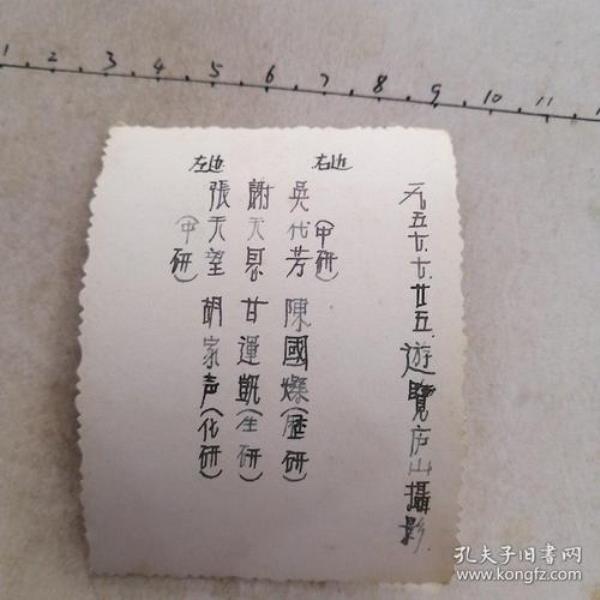 1 2 3 4 5 6 7 8 9 10 11
一九五七.七.廿五.遊覽庐山攝影.
右边
吳代芳(中研) 陳國燦(歷研)
謝天 甘運凱(生研)
左边
張天望(中研) 胡家声(化研)
孔夫子旧书网
www.kongfz.com